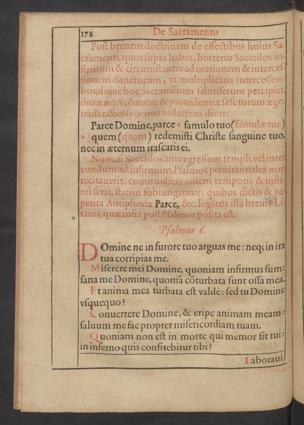 178 De Sacramento
Post breuem doctrinam de effectibus huius Sa
cramenti, quos supra habes, hortetur Sacerdos in-
firmum & circumstantes ad orationem & interces-
sionem Sanctorum, vt multiplicatis intercessori-
bus,
diuinæq; voluntati & prouidentiæ sese totum
Parce Domine, parce famulo tuo (famulæ tuæ)
quem (quam) redemisti Christe sanguine tuo,
nec in æternum irascaris ei.
Nunc, si Sacerdos ante egressum templi, vel inter
eundum ad infirmum, Psalmos pœnitentiales non
recitauerit, commoditas autem temporis & infir
mi ferat, statim subiungantur: quibus dictis & re-
petenta Antiphona Parce, &c. legatur illa breuis Li
tania, quæ infra post Psalmos posita est.
Psalmus 6.
Domine ne in furore tuo arguas me: neq; in ira
tua corripias me.
Miserere mei Domine, quoniam infirmus sum:
sana me Domine, quoniā cōturbata sunt ossa mea.
Et anima mea turbata est valde: sed tu Domine
vsquequo?
Conuertere Domine, & eripe animam meam:
saluum me fac propter misericordiam tuam.
Quoniam non est in morte qui memor sit tui:
in inferno quis confitebitur tibi?
Laboraui